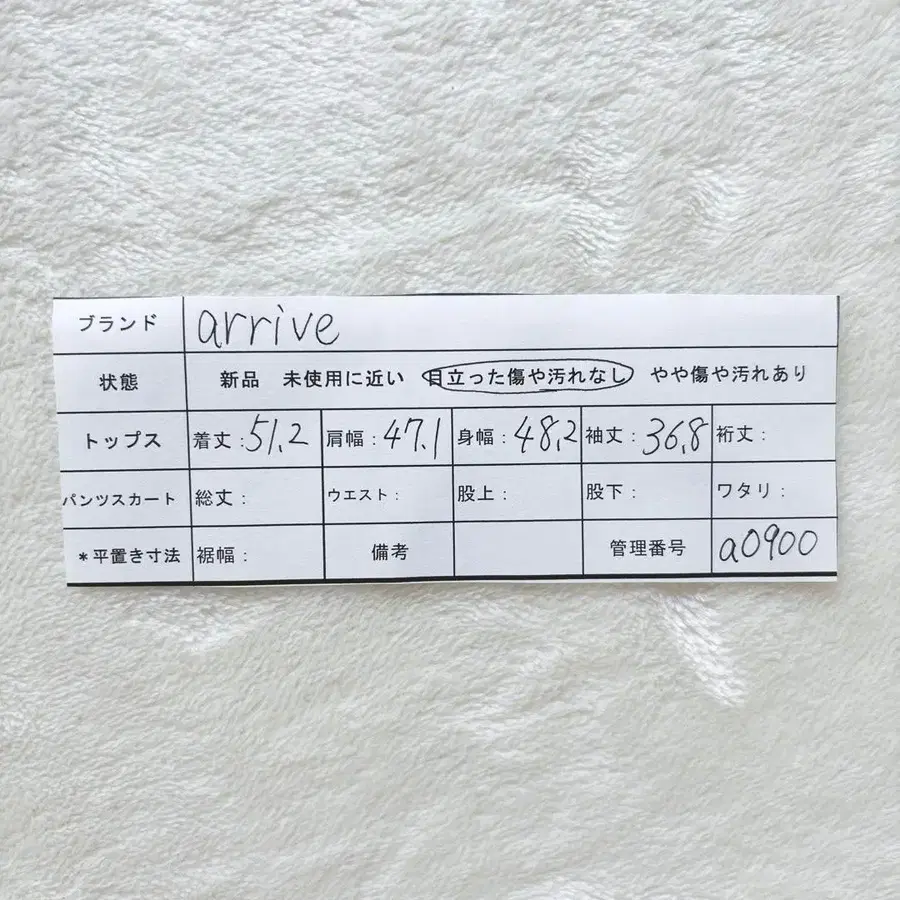 ブランド arrive
状態 新品 未使用に近い 目立った傷や汚れなし やや傷や汚れあり
トップス 着丈:51.2 肩幅:47.1 身幅:48.2 袖丈:36.8 裄丈:
パンツスカート 総丈: ウエスト: 股上: 股下: ワタリ:
*平置き寸法 裾幅: 備考 管理番号 a0900